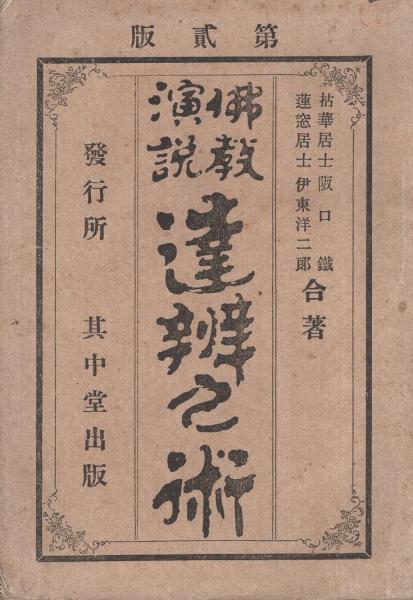 第貳版
拈華居士阪口鐵
蓮窓居士伊東洋二郎
合著
佛教
演説
達辨之術
發行所 其中堂出版